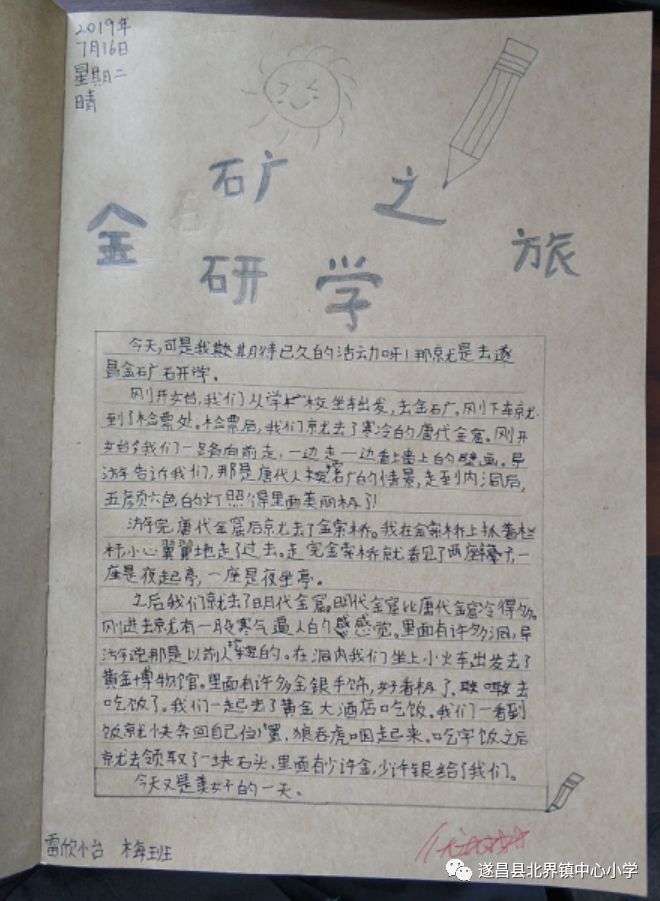 2019年
7月16日
星期二
晴
金矿研学之旅
今天,可是我期待已久的活动呀!那就是去遂
昌金矿研学。
刚开始,我们从学校坐车出发,去金矿。刚下车就
到了检票处。检票后,我们就去了寒冷的唐代金窟。刚开
始我们一路向前走,一边走一边看墙上的壁画。导
游告诉我们,那是唐代人挖矿的情景,走到内洞后,
五颜六色的灯照得里面美丽极了!
游完唐代金窟后就去了金索桥。我在金索桥上抓着栏
杆小心翼翼地走了过去。走完金索桥就看见了两座亭子,一
座是夜起亭,一座是夜坐亭。
之后我们就去了明代金窟。明代金窟比唐代金窟冷得多。
刚进去就有一股寒气逼人的感觉。里面有许多洞,导
游说那是以前人挖的。在洞内我们坐上小火车出发去了
黄金博物馆。里面有许多金银手饰,好看极了。去
吃饭了。我们一起去了黄金大酒店吃饭。我们一看到
饭就快奔回自己位置,狼吞虎咽起来。吃完饭之后
就去领取了一块石头,里面有少许金,少许银给了我们。
今天又是美好的一天。
雷欣怡 梅班
优
遂昌县北界镇中心小学